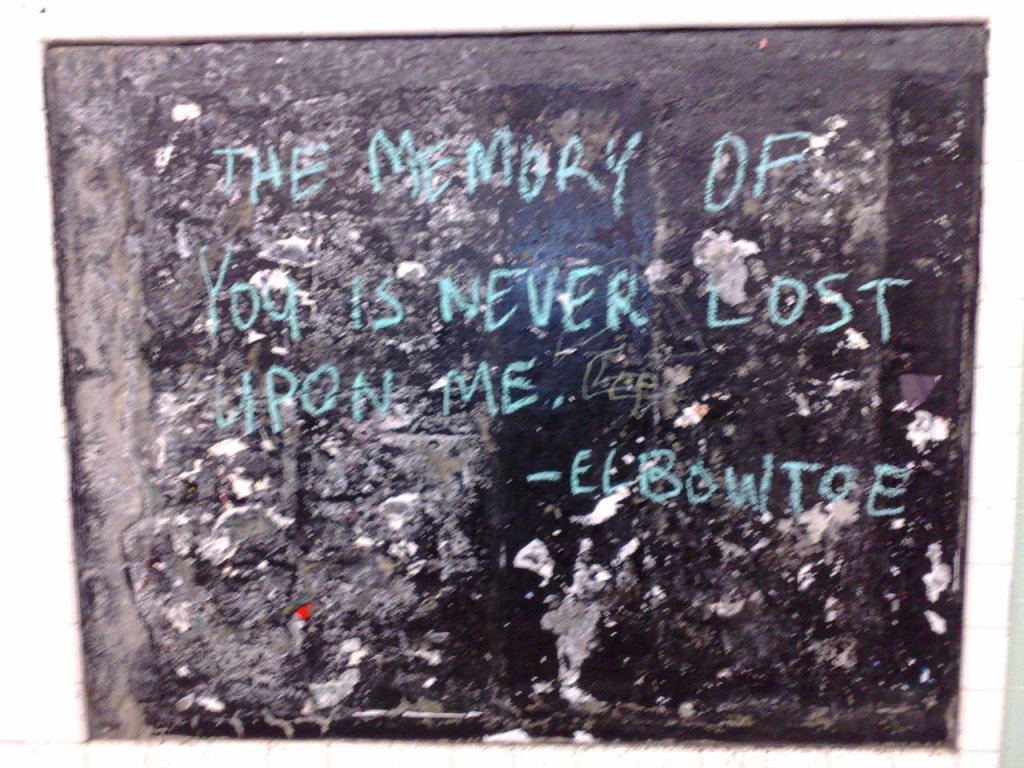 THE MEMORY OF
YOU IS NEVER LOST
UPON ME.
-ELBOWTOE